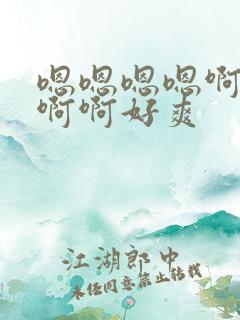 嗯嗯嗯嗯啊
啊啊好爽
江湖郎中
未经同意禁止转载